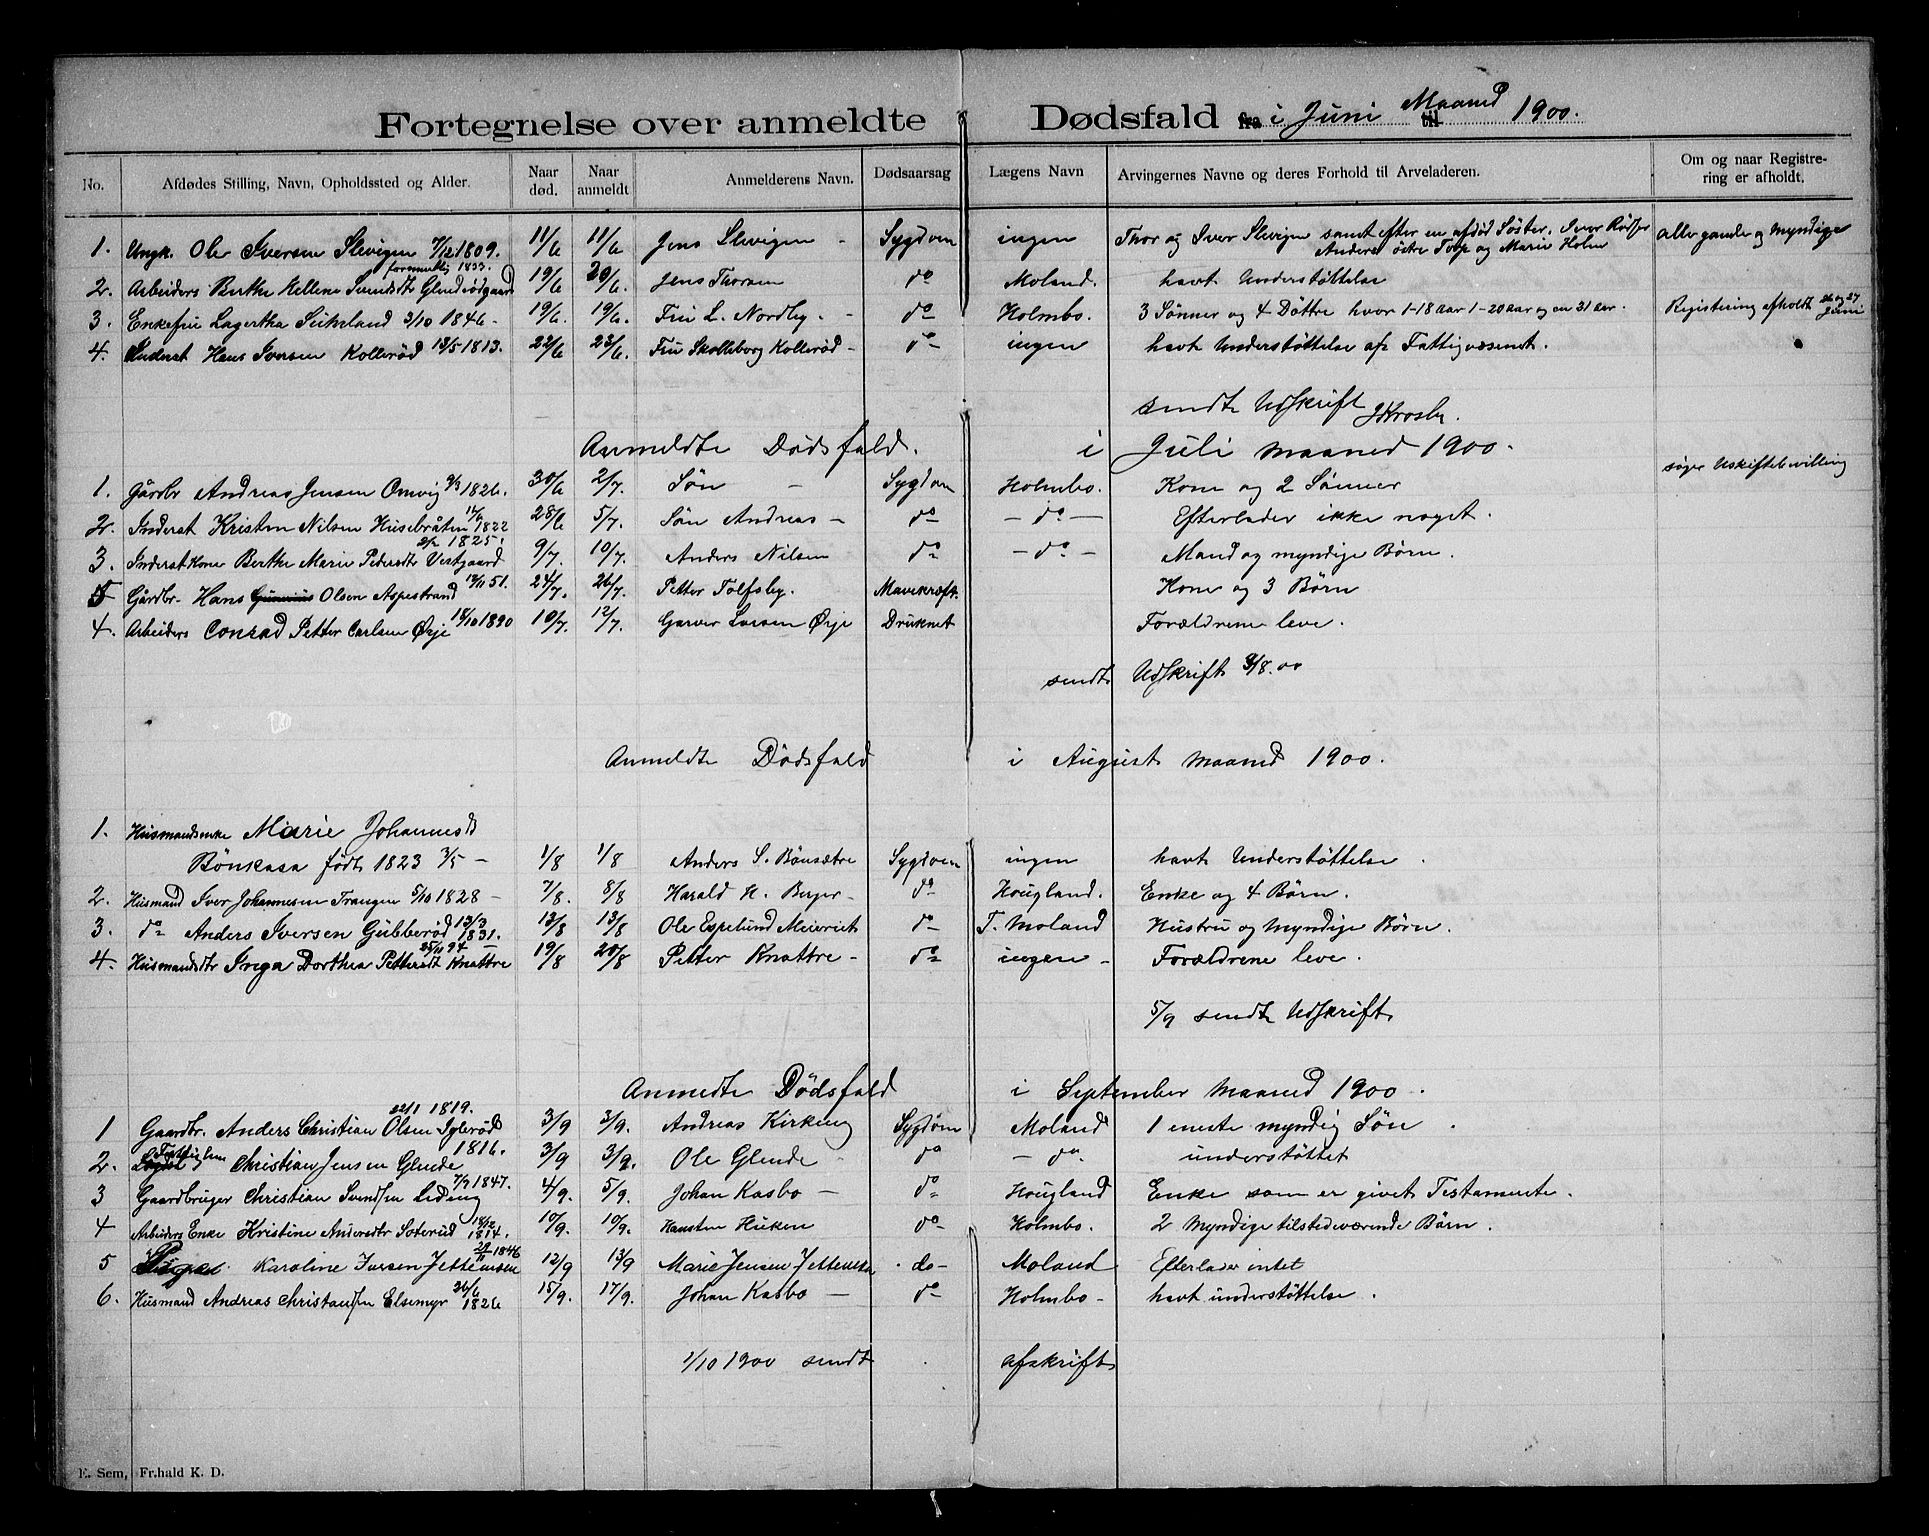 Fortegnelse over anmeldte Dødsfald fra i Juni Maaned til 1900.
No. Afdødes Stilling, Navn, Opholdssted og Alder. Naar død. Naar anmeldt Anmelderens Navn. Dødsaarsag Lægens Navn Arvingernes Navne og deres Forhold til Arveladeren. Om og naar Registrering er afholdt.
1. Ungk. Ole Iversen Slevigen 7/12 1809. 11/6 11/6 Jens Slevigen - Sygdom ingen Thor og Iver Slevigen samt efter en afdød Søster, Iver
Anders østre Torp og Marie Holm alle gamle og Myndige
formentlig 1833.
2. Arbeiders Berthe Hellene Svendsdtr 19/6 20/6. Jens Thorsen do Moland. havt Understøttelse
3. Enkefru Lagertha 3/10 1846 - 19/6. 19/6. Fru L. Nordby. - do Holmbo. 3 Sønner og 4 Døttre hvor 1-18 aar 1-20 aar og en 21 aar. Registering afholdt 26 og 27 Juni
4. Inderst Hans Iversen Kollerød 13/5 1813. 22/6 23/6. Fru Skolleborg Kollerød - do ingen havt Understøttelse af Fattigvæsenet.
sendte Udskrift
Anmeldte Dødsfald. i Juli maaned 1900.
1. Gårdbr Andreas Jensen Omvig 9/3 1826. 30/6 2/7. Søn - Sygdom Holmbo. Kone og 2 Sønner søger Uskiftebevilling
2. Inderst Kristen Nilsen Husebråten 1822 28/6 5/7. Søn Andreas - do - do - Efterlader ikke noget.
2/2 1825.
3. Inderstkone Berthe Marie Pedersdtr Vestgaard 9/7. 10/7. Anders Nilsen do - do - Mand og myndige Børn.
5 Gårdbr. Hans Gunerius Olsen Aspestrand 12/11 51. 24/7. 26/7. Petter Tolfsby. Mavekræft. Kone og 3 Børn
4. Arbeiders Conrad Petter Carlsen Ørje 14/10 1890 10/7. 12/7. Garver Larsen Ørje Druknet Forældrene leve.
sendt Udskrift 3/8.00
Anmeldte Dødsfald i August maaned 1900.
1. Husmandsenke Marie Johannesd
Bönkasa født 1823 3/5 - 1/8 1/8 Anders S. Bönsætre Sygdom ingen havt Understøttelse.
2. Husmand Iver Johannesen Trangen 5/10 1828 - 7/8. 8/8 Harald H. Berger - do Hougland. Enke og 4 Børn.
3. do Anders Iversen Gubberød 13/3 1831. 13/8 13/8 Ole Espelund Meieriet do T. Moland Hustru og Myndige Børn.
25/11 94 -
4. Husmandsdtr Inga Dorthea Pettersdt Knattre 19/8 20/8 Petter Knattre - do ingen - Forældrene leve.
5/9 sendte Udskrift
Anmedte Dødsfald i September maaned 1900.
22/1 1819.
1 Gaardbr. Anders Christian Olsen Iglerød 3/9 3/9. Andreas Kirkeng Sygdom Moland 1 eneste myndig Søn.
1816.
2. Fattiglem Christian Jensen Glende 3/9 3/9. Ole Glende do - do. understøttet
7/9 1847.
3 Gaardbruger Christian Svendsen Liding 4/9. 5/9. Johan Kasbo - do Hougland Enke som er givet Testamente.
4 Arbeiders Enke Kristine Andersdtr Soterud 18/12 1814. 10/9. 10/9. Hansten Huken do Holmbo. 2 Myndige tilstedeværende Børn.
29/11 1846
5 Karoline Iversen Jettemsen 12/9 13/9 Marie Jensen Jettemsen . do - Moland Efterlader intet
6. Husmand Andreas Christansen Elsemyr 26/6 1826 15/9. 17/9. Johan Kasbo - do Holmbo - havt understøttelse.
1/10 1900 sendt afskrift
E. Sem, Fr.hald K. D.